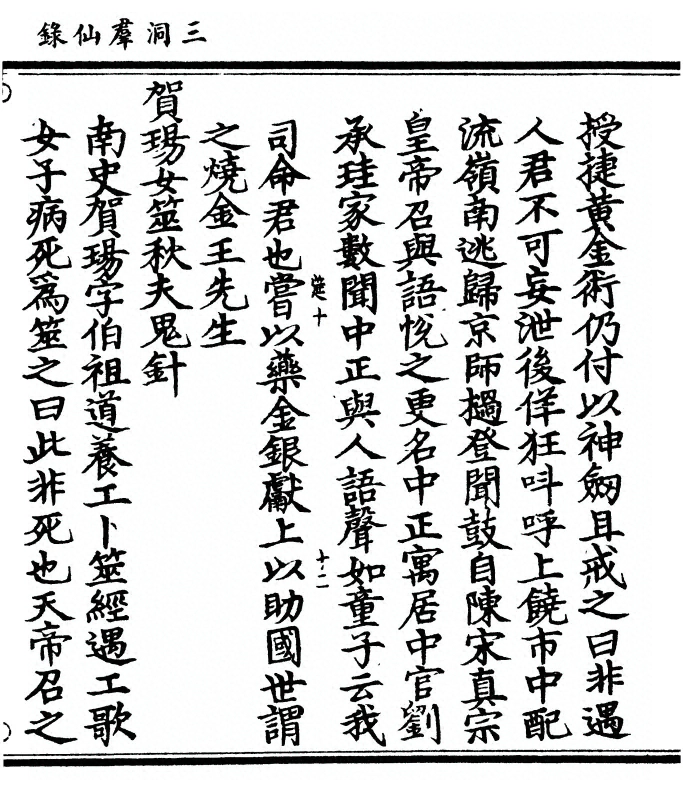 三洞羣仙錄
授捷黃金術仍付以神劒且戒之曰非遇
人君不可妄泄後佯狂呌呼上饒市中配
流嶺南逃歸京師撾登聞鼓自陳宋真宗
皇帝召與語悅之更名中正寓居中官劉
承珪家數聞中正與人語聲如童子云我
筵十
十二
司命君也嘗以藥金銀獻上以助國世謂
之燒金王先生
賀瑒女筮秋夫鬼針
南史賀瑒字伯祖道養工卜筮經遇工歌
女子病死爲筮之曰此非死也天帝召之